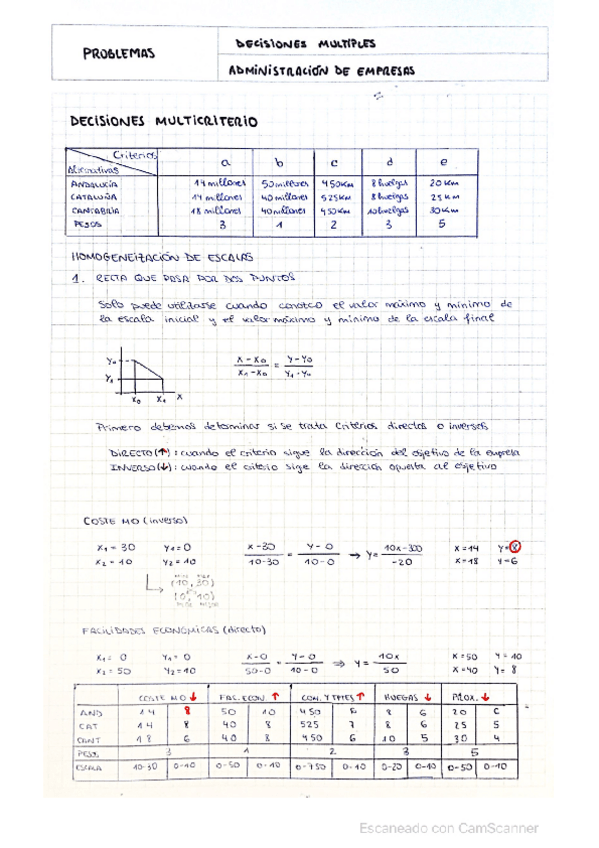 PROBLEMAS
DECISIONES MULTIPLES
ADMINISTRACIÓN DE EMPRESAS
DECISIONES MULTICRITERIO
Criterios a b c d e
Alternativas
ANDALUCÍA 14 millones 50 millones 450 Km 8 huelgas 20 Km
CATALUÑA 14 millones 40 millones 525 Km 8 huelgas 25 Km
CANTABRIA 18 millones 40 millones 450 Km 10 huelgas 30 Km
PESOS 3 1 2 3 5
HOMOGENEIZACIÓN DE ESCALAS
1. RECTA QUE PASA POR DOS PUNTOS
Solo puede utilizarse cuando conozco el valor máximo y mínimo de
la escala inicial y el valor máximo y mínimo de la escala final
Y₀
Y₁
X₀ X₁ X
X-X₀ / X₁-X₀ = Y-Y₀ / Y₁-Y₀
Primero debemos determinar si se trata criterios directos o inversos
DIRECTO (↑): cuando el criterio sigue la dirección del objetivo de la empresa
INVERSO (↓): cuando el criterio sige la dirección opuesta al objetivo
COSTE MO (inverso)
X₁ = 30 Y₁ = 0 X-30 / 10-30 = Y-0 / 10-0 → Y = 10X-300 / -20 X = 14 Y = 8
X₂ = 10 Y₂ = 10 X = 18 Y = 6
(10, 30)
(0, 10)
FACILIDADES ECONÓMICAS (directo)
X₁ = 0 Y₁ = 0 X-0 / 50-0 = Y-0 / 10-0 ⇒ Y = 10X / 50 X = 50 Y = 10
X₂ = 50 Y₂ = 10 X = 40 Y = 8
COSTE MO ↓ FAC. ECON. ↑ COM. Y TPTES ↑ HUEGAS ↓ PROX. ↓
AND 14 8 50 10 450 6 8 6 20 6
CAT 14 8 40 8 525 7 8 6 25 5
CANT 18 6 40 8 450 6 10 5 30 4
PESO 3 1 2 3 5
ESCALA 10-30 0-10 0-50 0-10 0-750 0-10 0-20 0-10 0-50 0-10
Escaneado con CamScanner